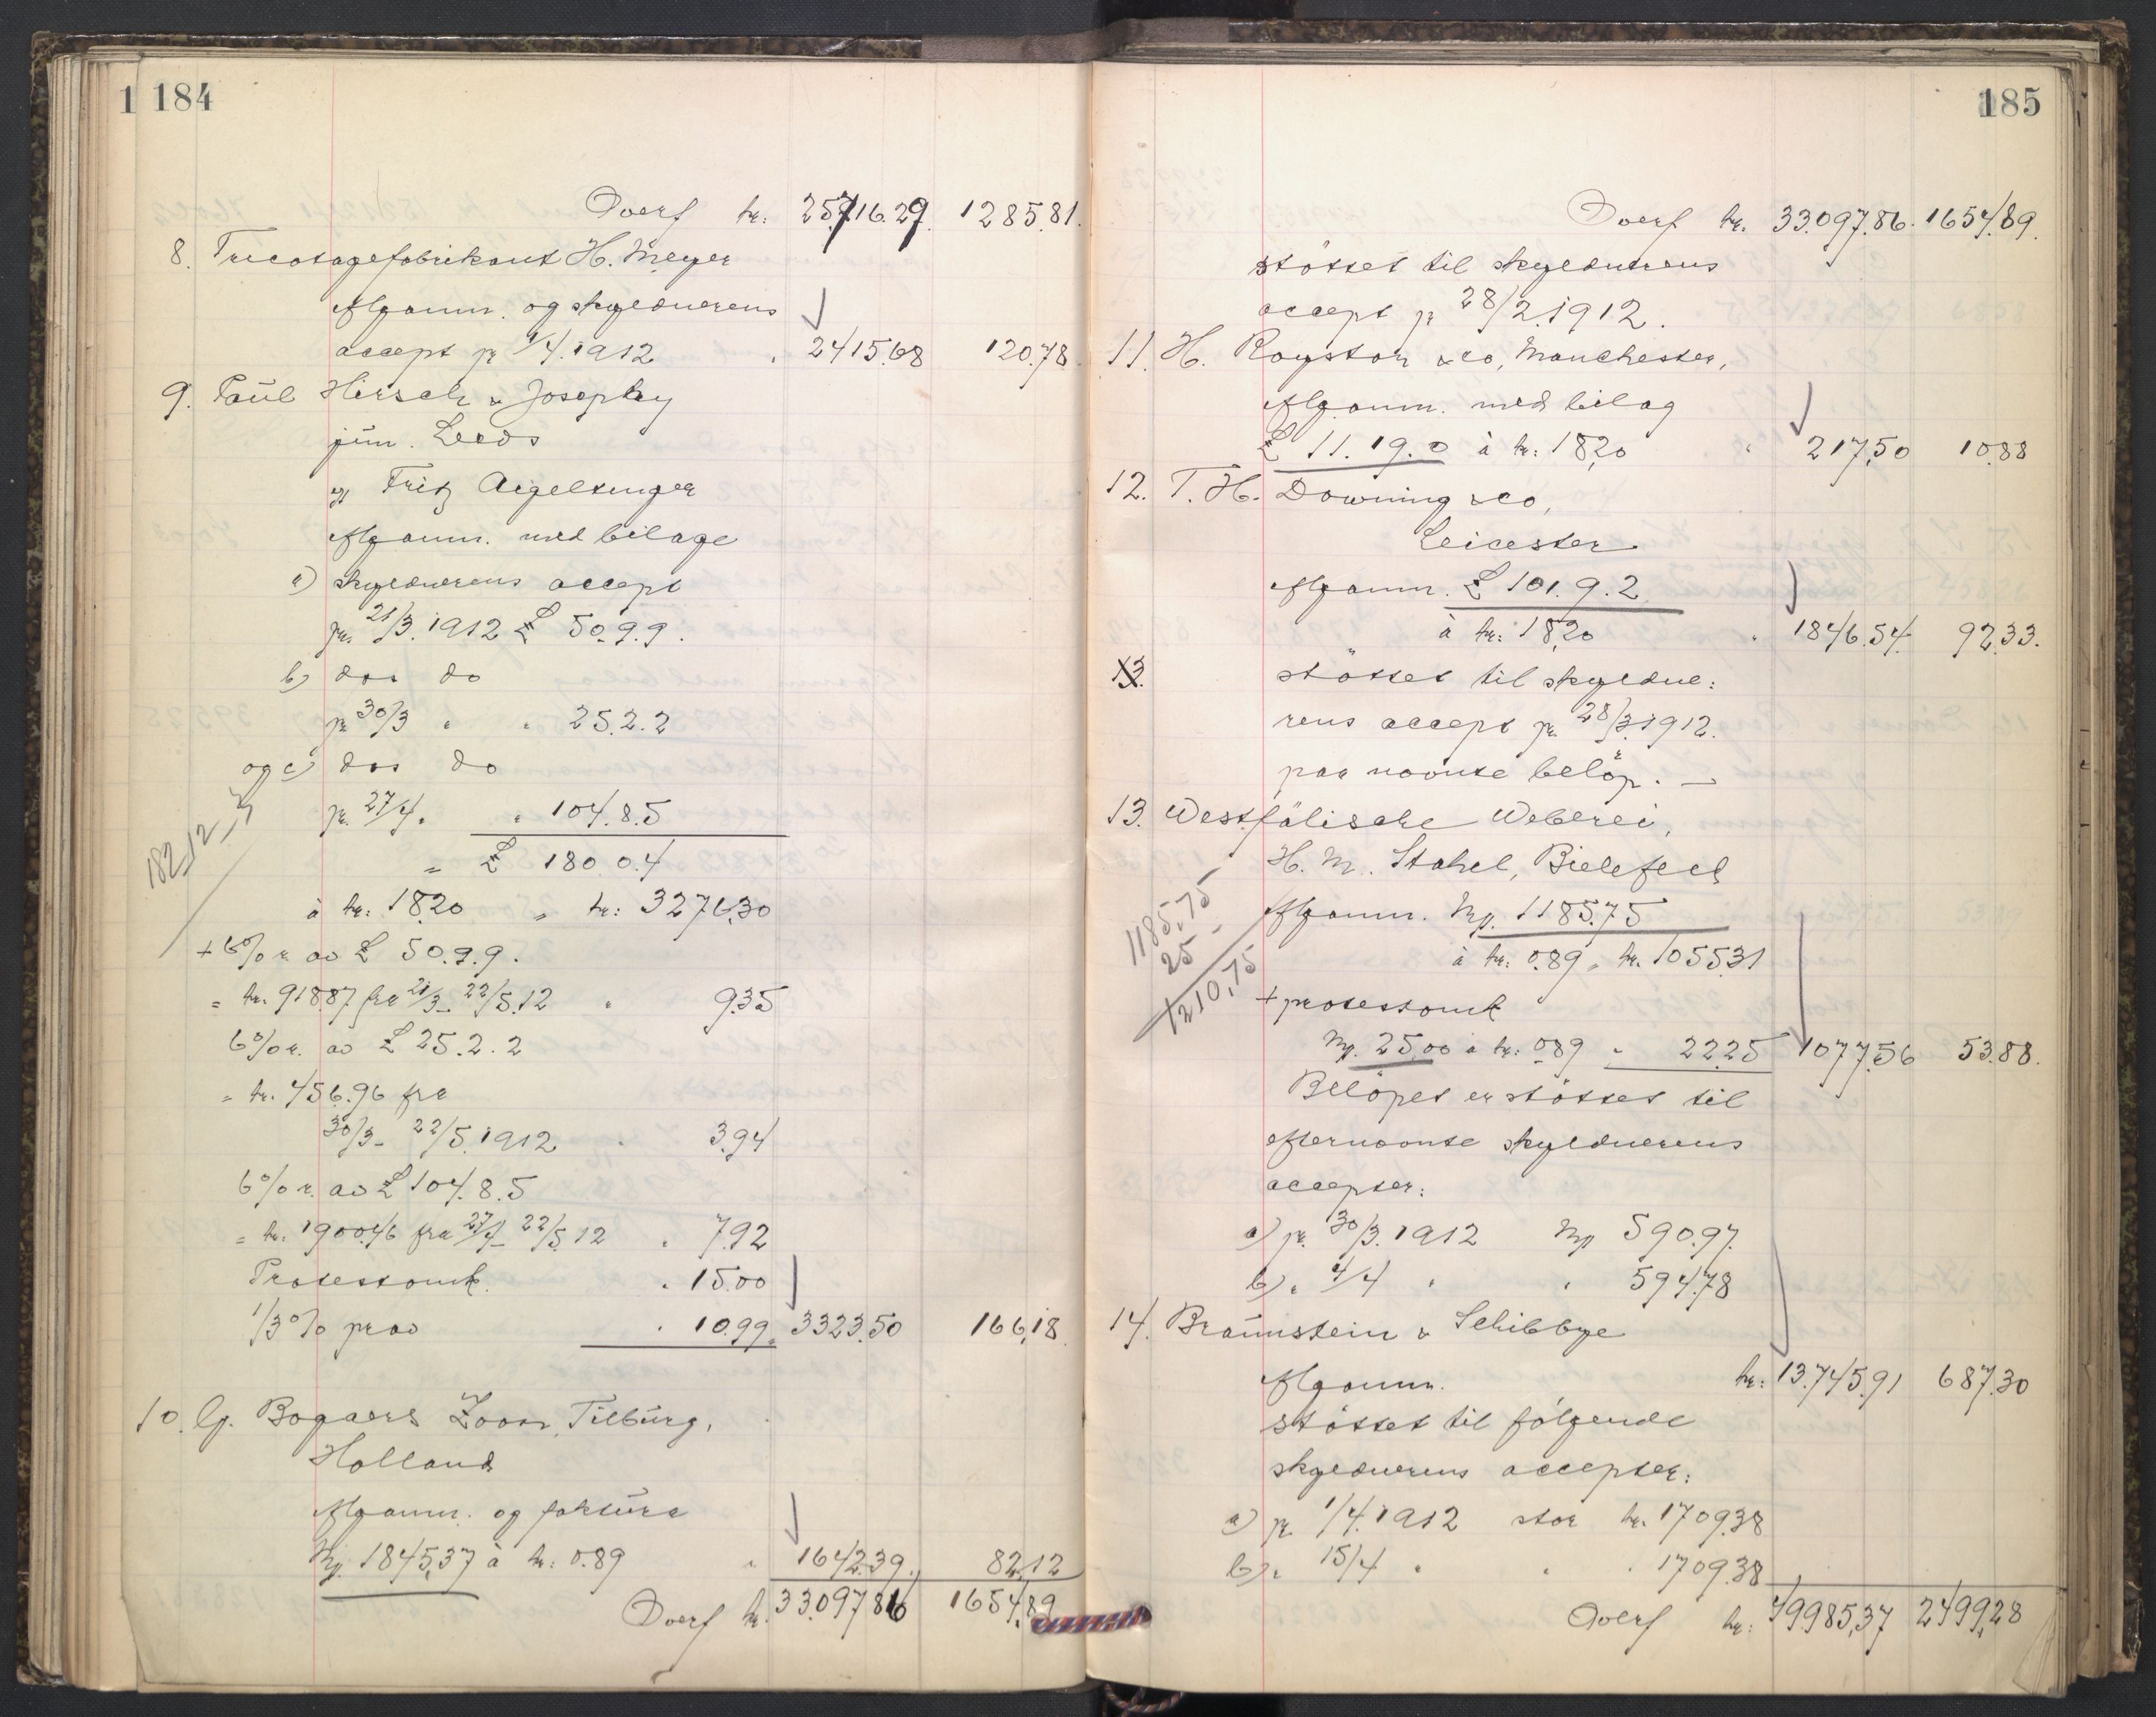 1 184
Overf kr: 25.716.29. 1285.81.
8. Tricotagefabrikant H. Meyer
Alganm. og skyldnerens
accept pr 1/4.1912 " 2415.68 120.78.
9. Paul Hirsch & Josephy
jun. Leeds
v/ Fritz Aegeltinger
Alganm. med bilage
a) skyldnerens accept
pr. 21/3.1912 £ 50.9.9.
b) dos do
pr 30/3 " " 25.2.2
og c) dos do
pr. 27/4. " 104.8.5
= £ 180.0.4
182,12_3
à kr: 18.20 = kr: 3276,30
+ 6% r. av £ 50.9.9.
= kr. 918.87 fra 21/3_ 22/5.12 " 9.35
6% r. av £ 25.2.2
= kr. 456.96 fra
30/3- 22/5.1912 " 3.94
6% r. av £ 104.8.5
= kr: 1900.46 fra 27/4_ 22/5.12 " 7.92
Protestomk. " 15.00
1/3% prov " 10.99. 3323.50 166,18
10. G. Bogaers Zoon, Tilburg,
Holland
Alganm. og faktura
Mk. 1845,37 à kr: 0.89 " 1642.39. 82,12
Overf kr. 33.097.86 1654.89
185
Overf kr. 33.097.86. 1654.89.
støttet til skyldnerens
accept pr 28/2.1912.
11. H. Royston & co, Manchester,
Alganm. med bilag
£ 11.19.0 à kr: 18,20 " 217,50 10.88
12. T. H. Downing & co,
Leicester
Alganm. £ 101.9.2
à kr: 18,20 " 1846.54. 92.33.
13. støttet til skyldne:
rens accept pr. 28/3.1912.
paa nævnte beløp. _
13. Westfälische Weberei,
H. M. Stahel, Bielefeld
1185,75
25_
1210,75
Alganm. Mk. 1185.75
à kr: 0.89 = kr. 1055.31
+ protestomk
Mk. 25,00 à kr: 0.89 " 22.25 1077,56 53.88.
Beløpet er støttet til
efternævnte skyldnerens
accepter:
a) pr. 30/3.1912 Mk 590.97.
b) " 4/4 " " 594.78
14. Braunstein & Schibbye
Algamm. kr: 13.745.91 687.30
støttet til følgende
skyldnerens accepter:
a) pr 1/4.1912 stor kr. 1709.38
b) " 15/4 " " " 1709.38
Overf kr: 49985,37 2499,28